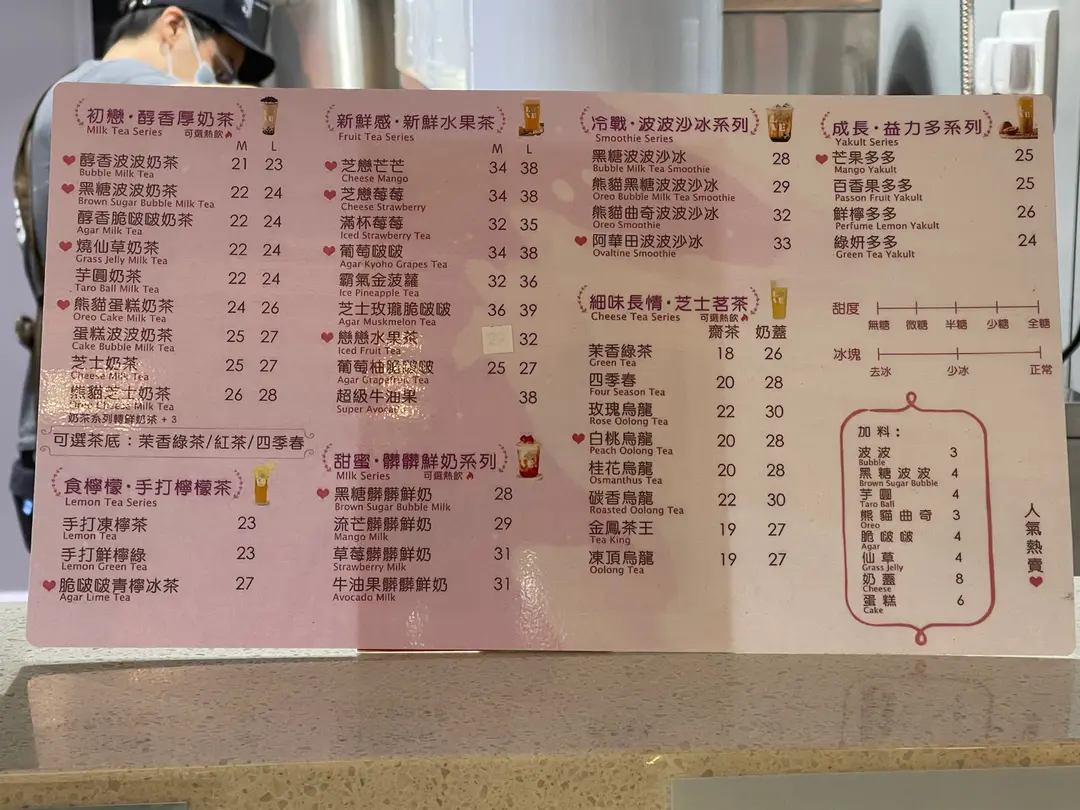 初戀·醇香厚奶茶
Milk Tea Series 可選熱飲
M L
醇香波波奶茶 21 23
Bubble Milk Tea
黑糖波波奶茶 22 24
Brown Sugar Bubble Milk Tea
醇香脆啵啵奶茶 22 24
Agar Milk Tea
燒仙草奶茶 22 24
Grass Jelly Milk Tea
芋圓奶茶 22 24
Taro Ball Milk Tea
熊貓蛋糕奶茶 24 26
Oreo Cake Milk Tea
蛋糕波波奶茶 25 27
Cake Bubble Milk Tea
芝士奶茶 25 27
Cheese Milk Tea
熊貓芝士奶茶 26 28
Oreo Cheese Milk Tea
奶茶系列轉鮮奶茶 + 3
可選茶底：茉香綠茶/紅茶/四季春
食檸檬·手打檸檬茶
Lemon Tea Series
手打凍檸茶 23
Lemon Tea
手打鮮檸綠 23
Lemon Green Tea
脆啵啵青檸冰茶 27
Agar Lime Tea
新鮮感·新鮮水果茶
Fruit Tea Series
M L
芝戀芒芒 34 38
Cheese Mango
芝戀莓莓 34 38
Cheese Strawberry
滿杯莓莓 32 35
Iced Strawberry Tea
葡萄啵啵 34 38
Agar Kyoho Grapes Tea
霸氣金菠蘿 32 36
Ice Pineapple Tea
芝士玫瓏脆啵啵 36 39
Agar Muskmelon Tea
戀戀水果茶 32
Iced Fruit Tea
葡萄柚脆啵啵 25 27
Agar Grapefruit Tea
超級牛油果 38
Super Avocado
甜蜜·髒髒鮮奶系列
Milk Series 可選熱飲
黑糖髒髒鮮奶 28
Brown Sugar Bubble Milk
流芒髒髒鮮奶 29
Mango Milk
草莓髒髒鮮奶 31
Strawberry Milk
牛油果髒髒鮮奶 31
Avocado Milk
冷戰·波波沙冰系列
Smoothie Series
黑糖波波沙冰 28
Bubble Milk Tea Smoothie
熊貓黑糖波波沙冰 29
Oreo Bubble Milk Tea Smoothie
熊貓曲奇波波沙冰 32
Oreo Smoothie
阿華田波波沙冰 33
Ovaltine Smoothie
細味長情·芝士茗茶
Cheese Tea Series 可選熱飲
齋茶 奶蓋
茉香綠茶 18 26
Green Tea
四季春 20 28
Four Season Tea
玫瑰烏龍 22 30
Rose Oolong Tea
白桃烏龍 20 28
Peach Oolong Tea
桂花烏龍 20 28
Osmanthus Tea
碳香烏龍 22 30
Roasted Oolong Tea
金鳳茶王 19 27
Tea King
凍頂烏龍 19 27
Oolong Tea
成長·益力多系列
Yakult Series
芒果多多 25
Mango Yakult
百香果多多 25
Passon Fruit Yakult
鮮檸多多 26
Perfume Lemon Yakult
綠妍多多 24
Green Tea Yakult
甜度
無糖 微糖 半糖 少糖 全糖
冰塊
去冰 少冰 正常
加料：
波波 3
Bubble
黑糖波波 4
Brown Sugar Bubble
芋圓 4
Taro Ball
熊貓曲奇 3
Oreo
脆啵啵 4
Agar
仙草 4
Grass Jelly
奶蓋 8
Cheese
蛋糕 6
Cake
人氣熱賣